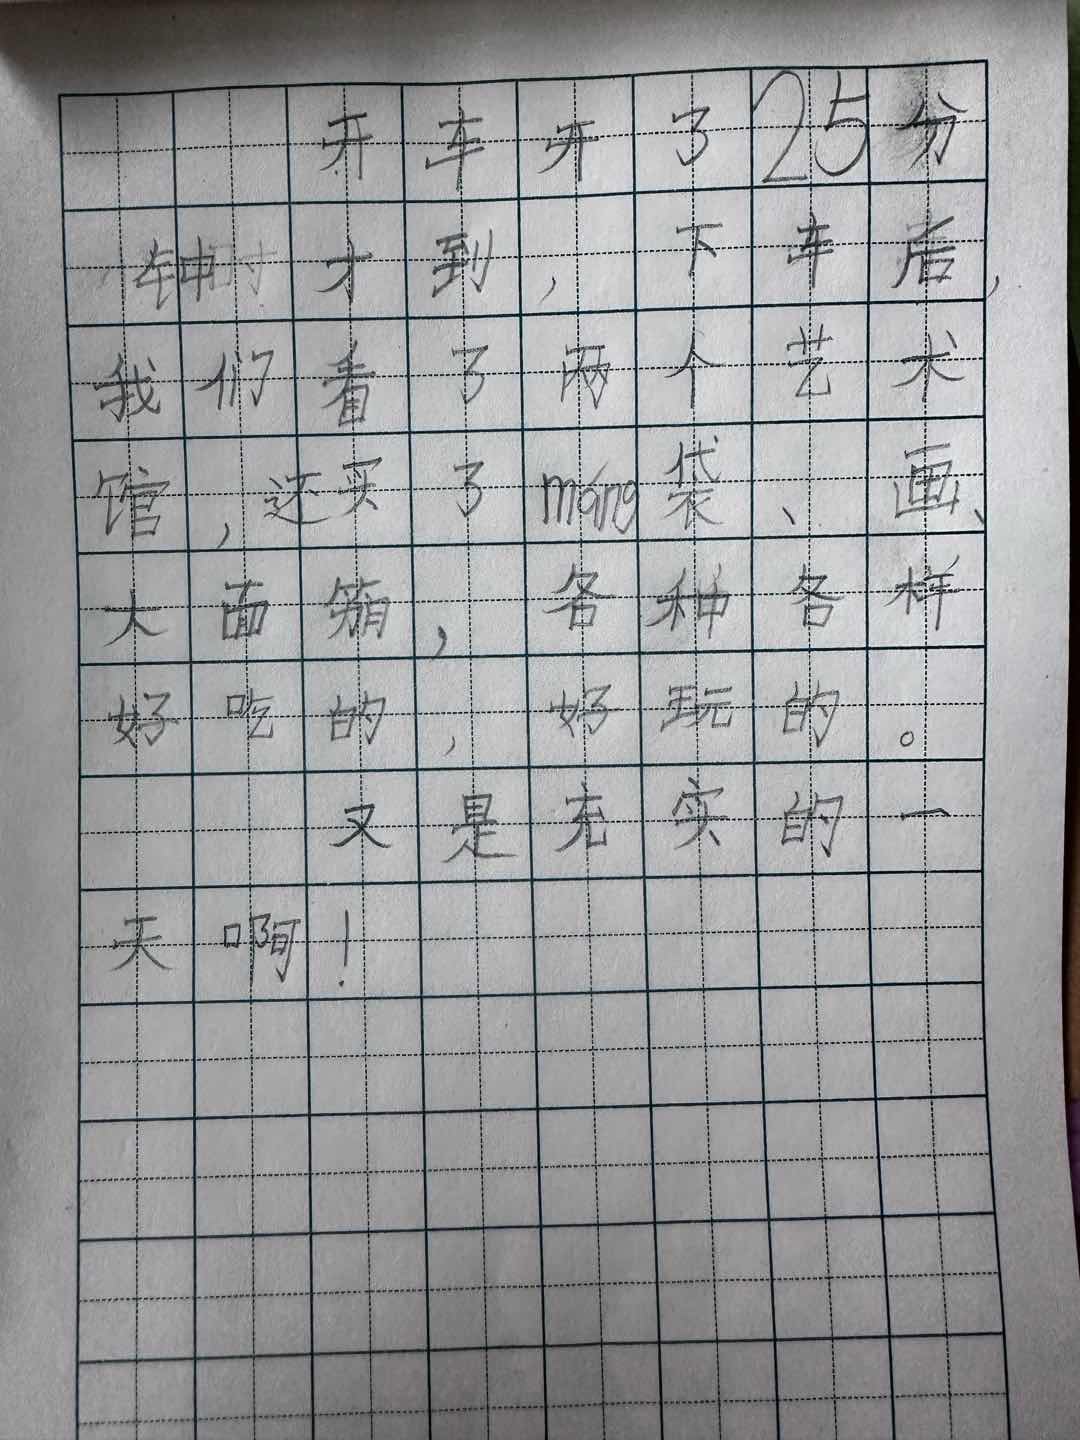 开车开了25分
钟才到,下车后,
我们看了两个艺术
馆,还买了máng袋、画、
大面,各种各样
好吃的,好玩的。
又是充实的一
天啊!